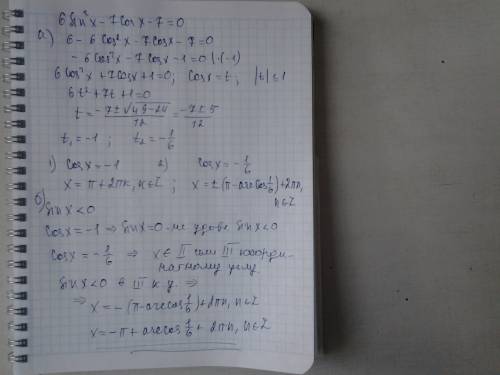 6 sin²x - 7 cos x - 7 = 0
а) 6 - 6 cos²x - 7 cos x - 7 = 0
- 6 cos²x - 7 cos x - 1 = 0 |·(-1)
6 cos²x + 7 cos x + 1 = 0; cos x = t; |t| ≤ 1
6t² + 7t + 1 = 0
t = (-7 ± √(49 - 24))/12 = (-7 ± 5)/12
t₁ = -1; t₂ = -1/6
1) cos x = -1 2) cos x = -1/6
x = π + 2πk, k∈Z; x = ±(π - arccos 1/6) + 2πn, n∈Z
б) sin x < 0
cos x = -1 ⇒ sin x = 0 - не удовл. sin x < 0
cos x = -1/6 ⇒ x ∈ II или III коорди-
натному углу.
sin x < 0 в III к.у. ⇒
⇒ x = -(π - arccos 1/6) + 2πn, n∈Z
x = -π + arccos 1/6 + 2πn, n∈Z